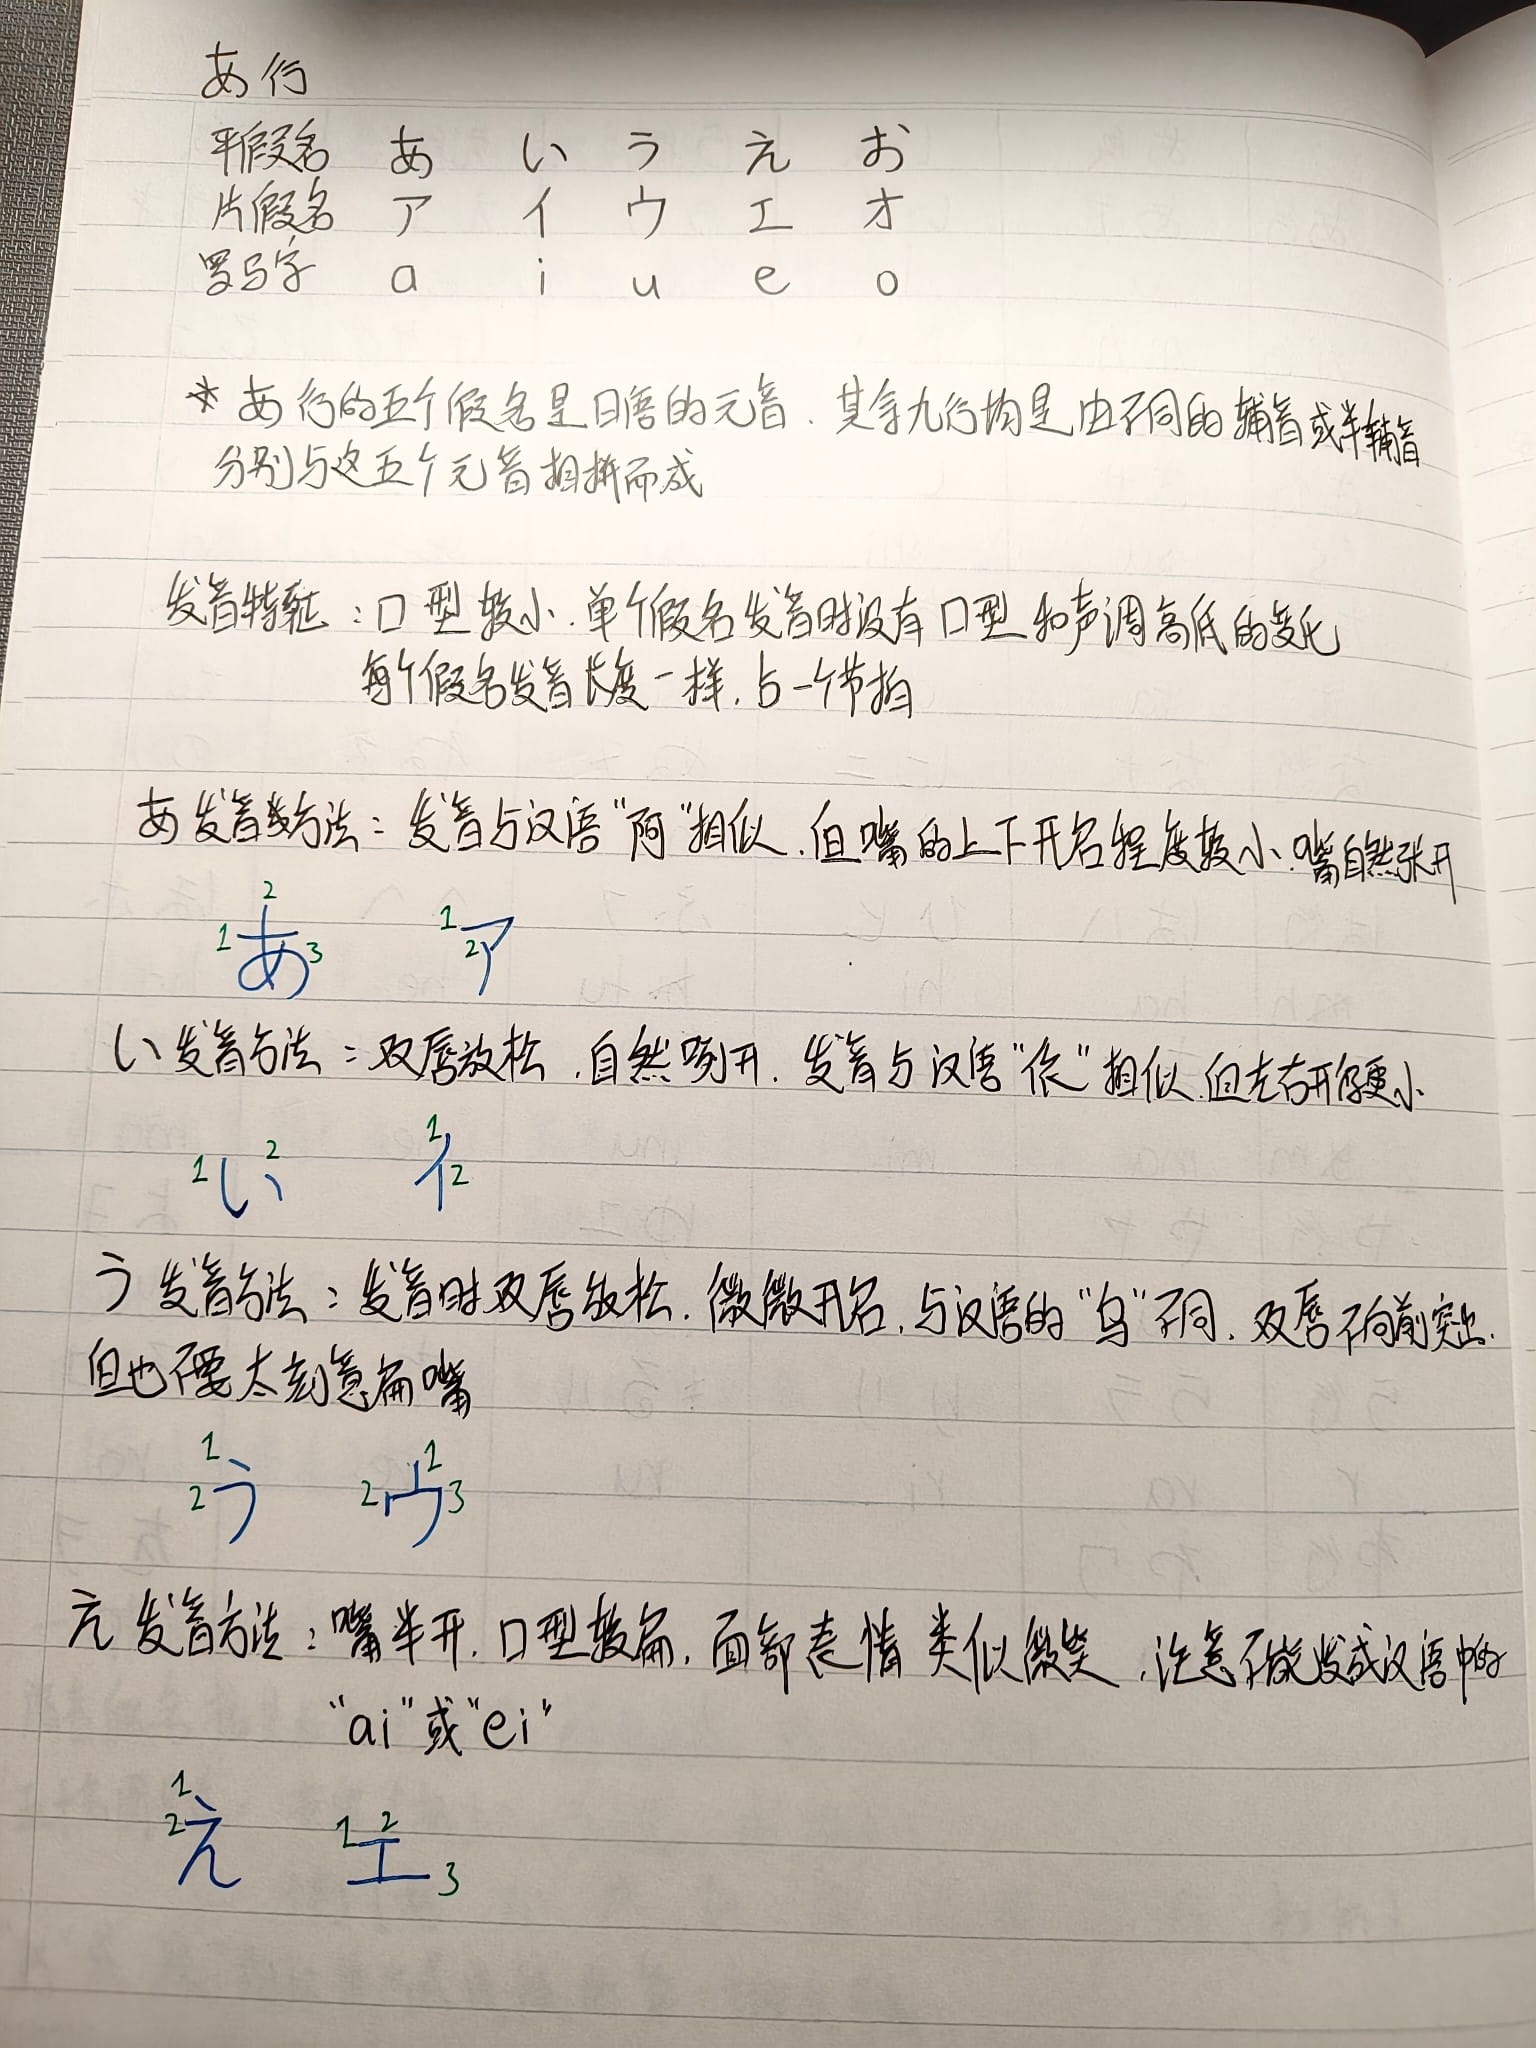 あ行
平假名 あ い う え お
片假名 ア イ ウ エ オ
罗马字 a i u e o
* あ行的五个假名是日语的元音.其余九行均是由不同的辅音或半辅音
分别与这五个元音相拼而成
发音特征:口型较小.单个假名发音时没有口型和声调高低的变化
每个假名发音长度一样,占一个节拍
あ发音方法:发音与汉语“阿”相似.但嘴的上下开启程度较小.嘴自然张开
1 2 3 あ 1 2 ア
い发音方法:双唇放松.自然咧开.发音与汉语“衣”相似.但左右开得更小
1 い 2 1 イ 2
う发音方法:发音时双唇放松.微微开启,与汉语的“乌”不同.双唇不向前突出.
但也不要太刻意扁嘴
1 2 う 2 ウ 1 3
え发音方法:嘴半开.口型较扁.面部表情类似微笑.注意不能发成汉语中的
“ai”或“ei”
1 2 え 1 2 エ 3